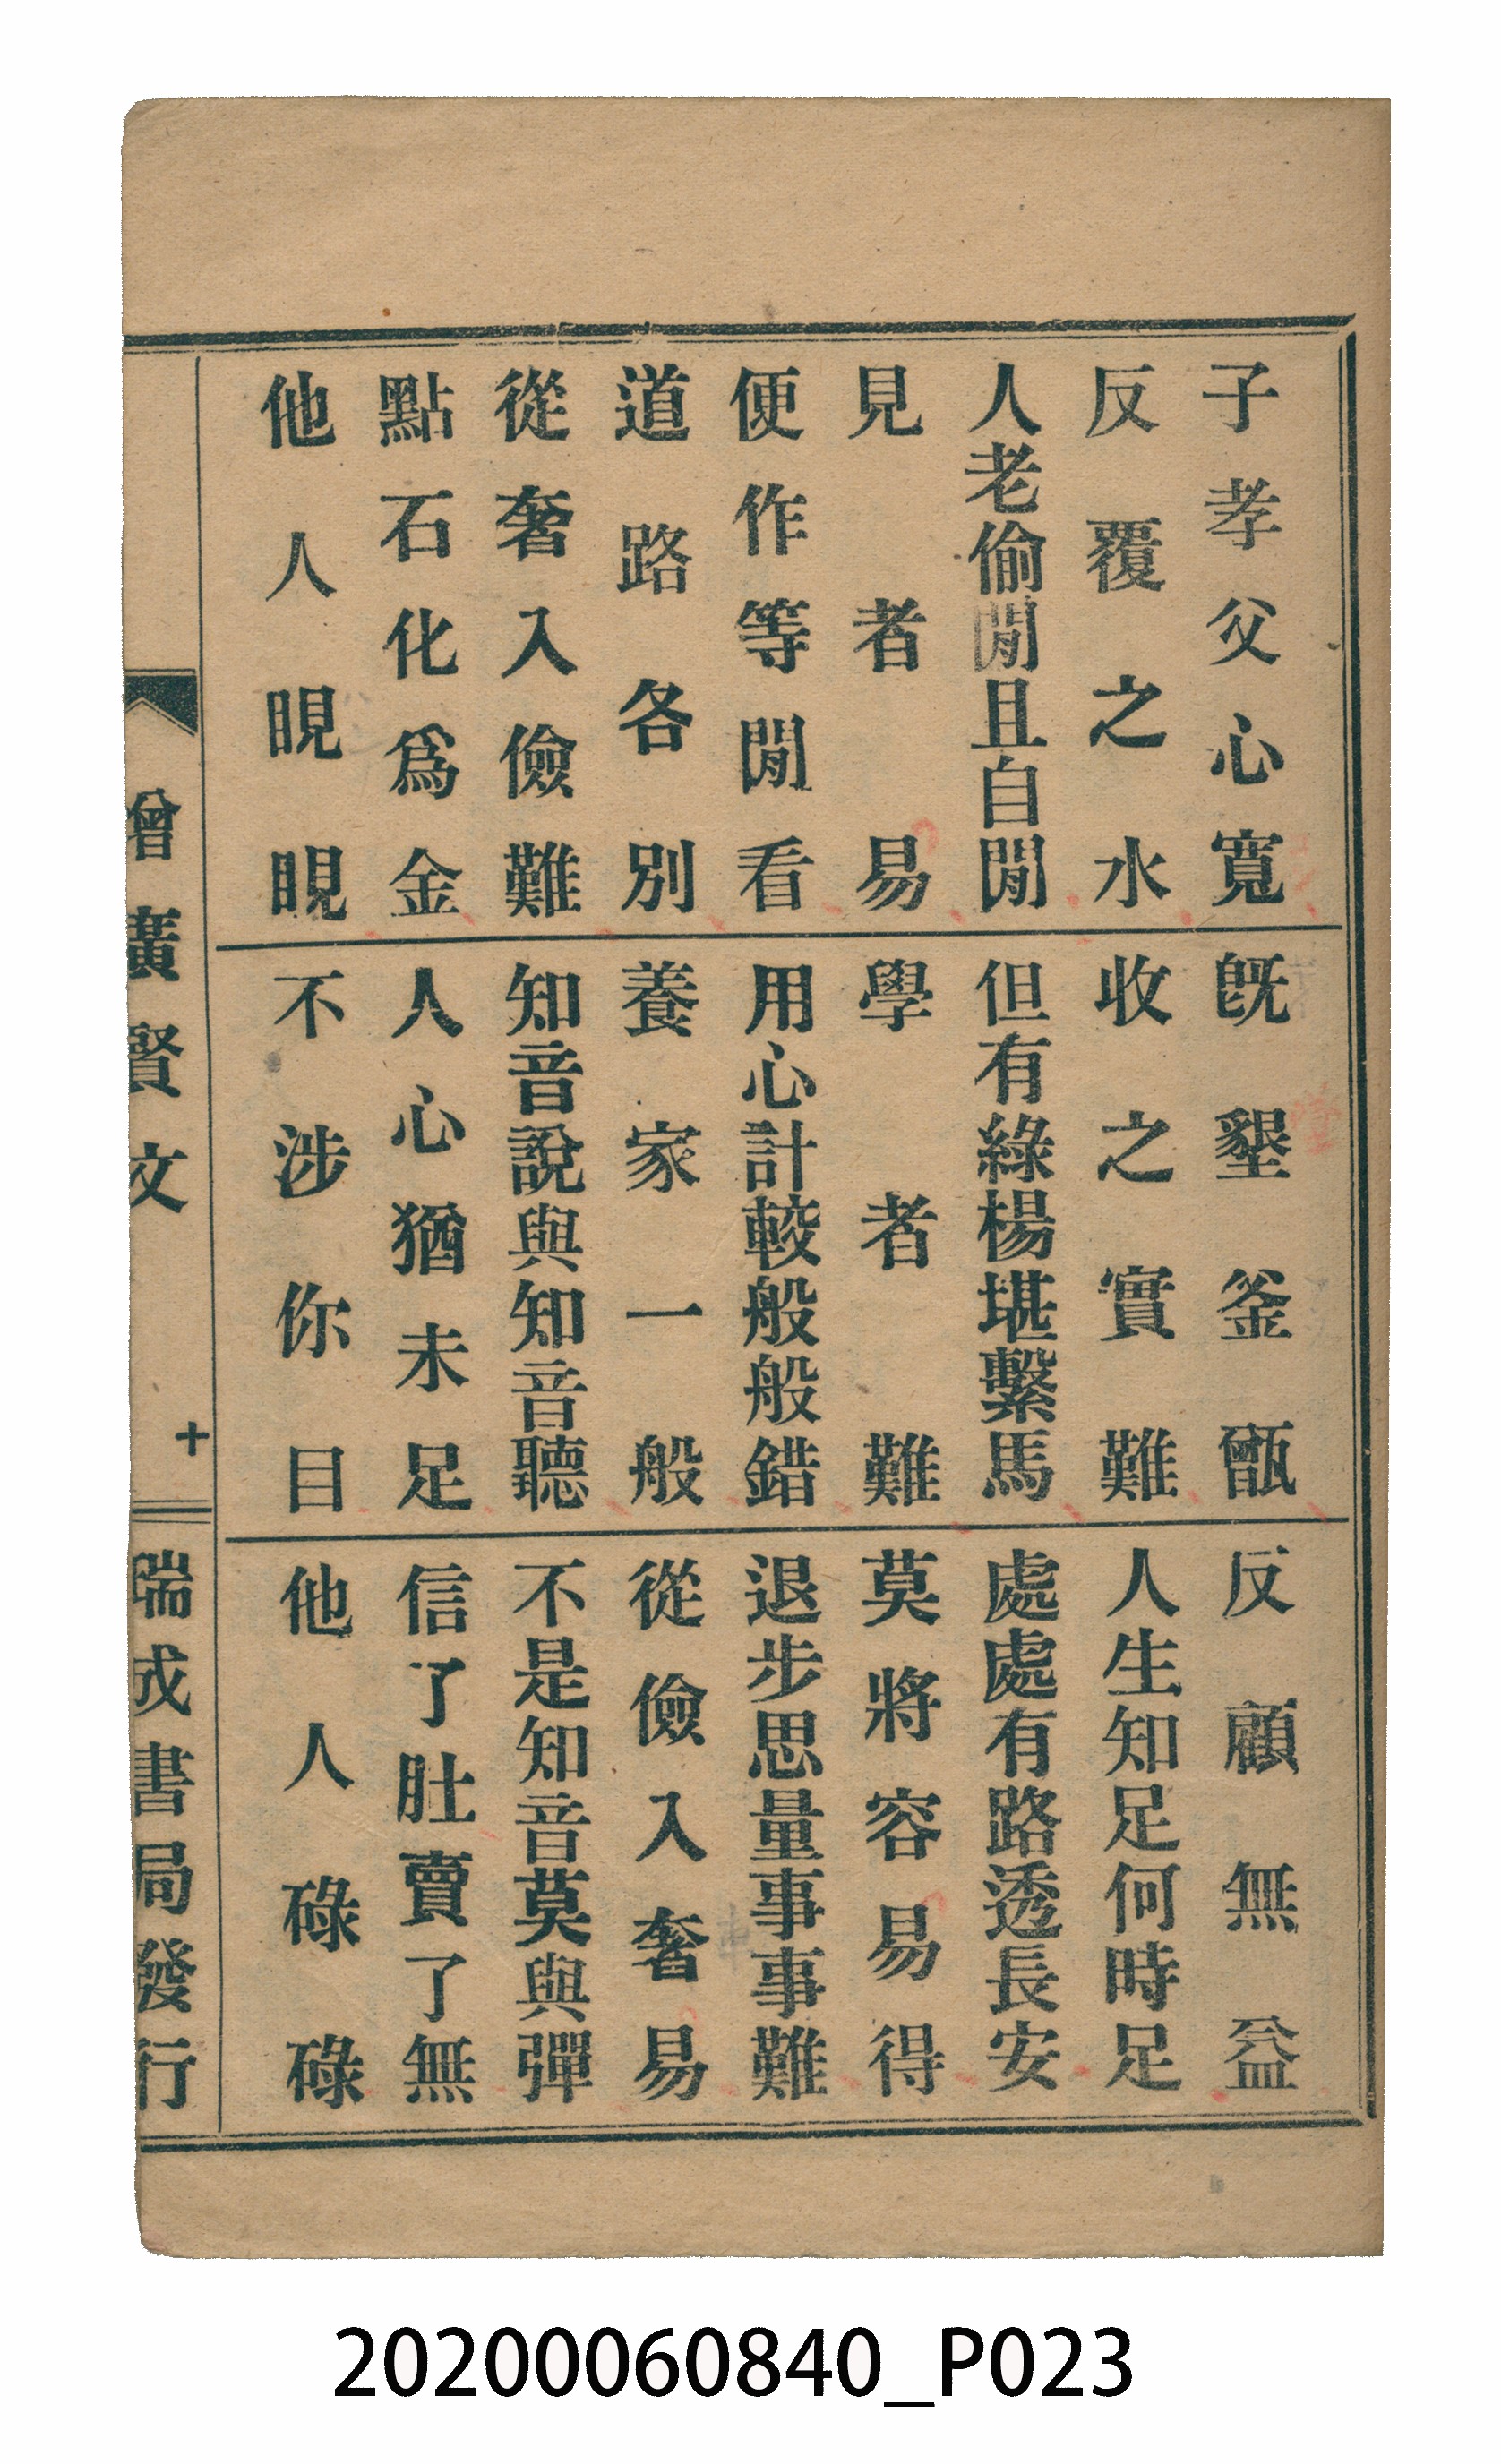 子孝父心寬
既墾釜甑
反顧無益
反覆之水
收之實難
人生知足何時足
人老偷閒且自閒
但有綠楊堪繫馬
處處有路透長安
見者易
學者難
莫將容易得
便作等閒看
用心計較般般錯
退步思量事事難
道路各別
養家一般
從儉入奢易
從奢入儉難
知音說與知音聽
不是知音莫與彈
點石化爲金
人心猶未足
信了肚賣了無
他人睍睍
不涉你目
他人碌碌
增廣賢文
十
瑞成書局發行
20200060840_P023